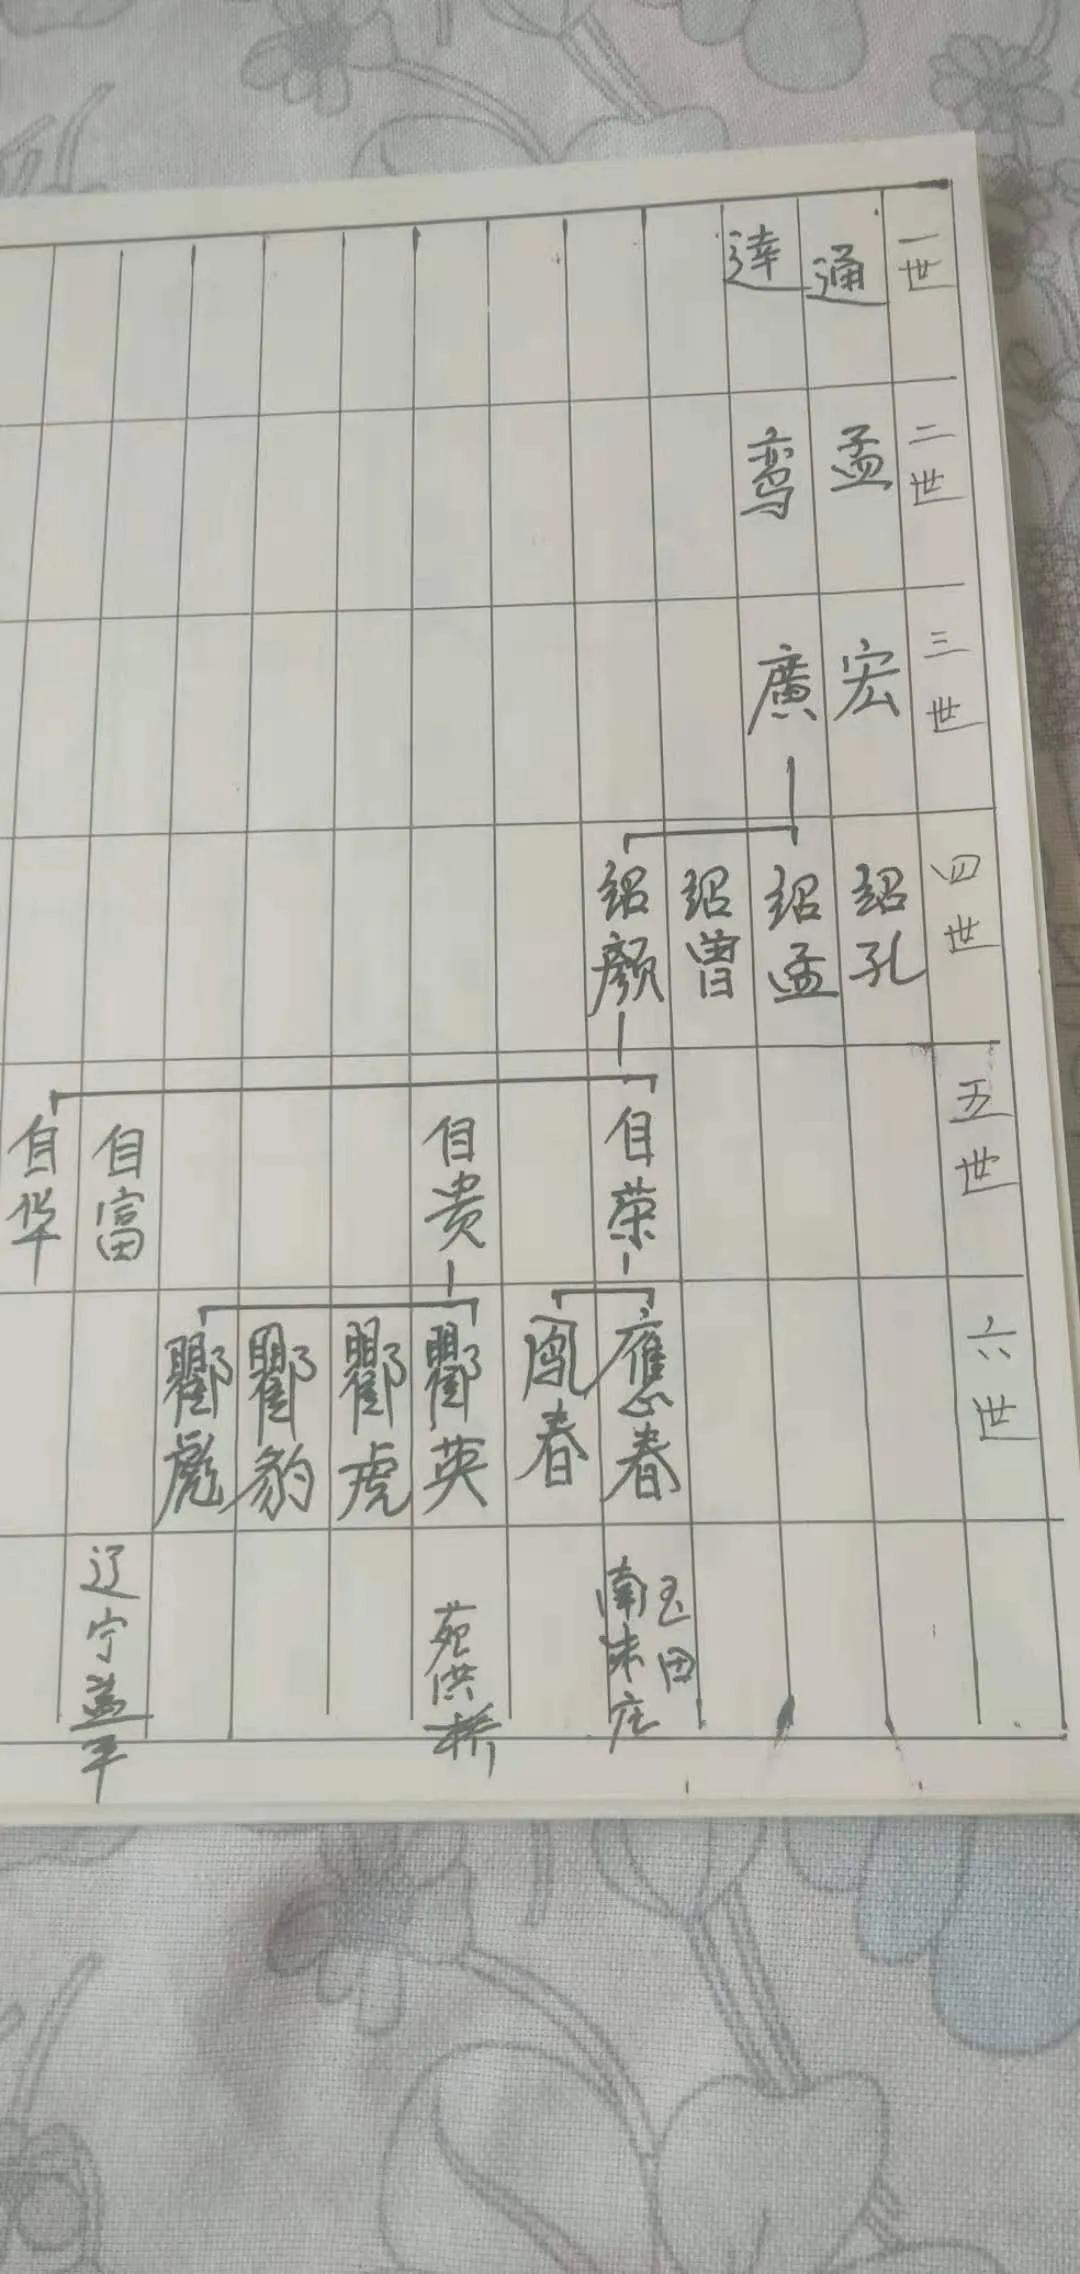 一世
通
達
二世
孟
鸾
三世
宏
廣
四世
绍孔
绍孟
绍曾
绍顏
五世
自荣
自贵
自富
自华
六世
應春
春
英
虎
豹
彪
玉田
南朱庄
苑洪桥
辽宁盖平